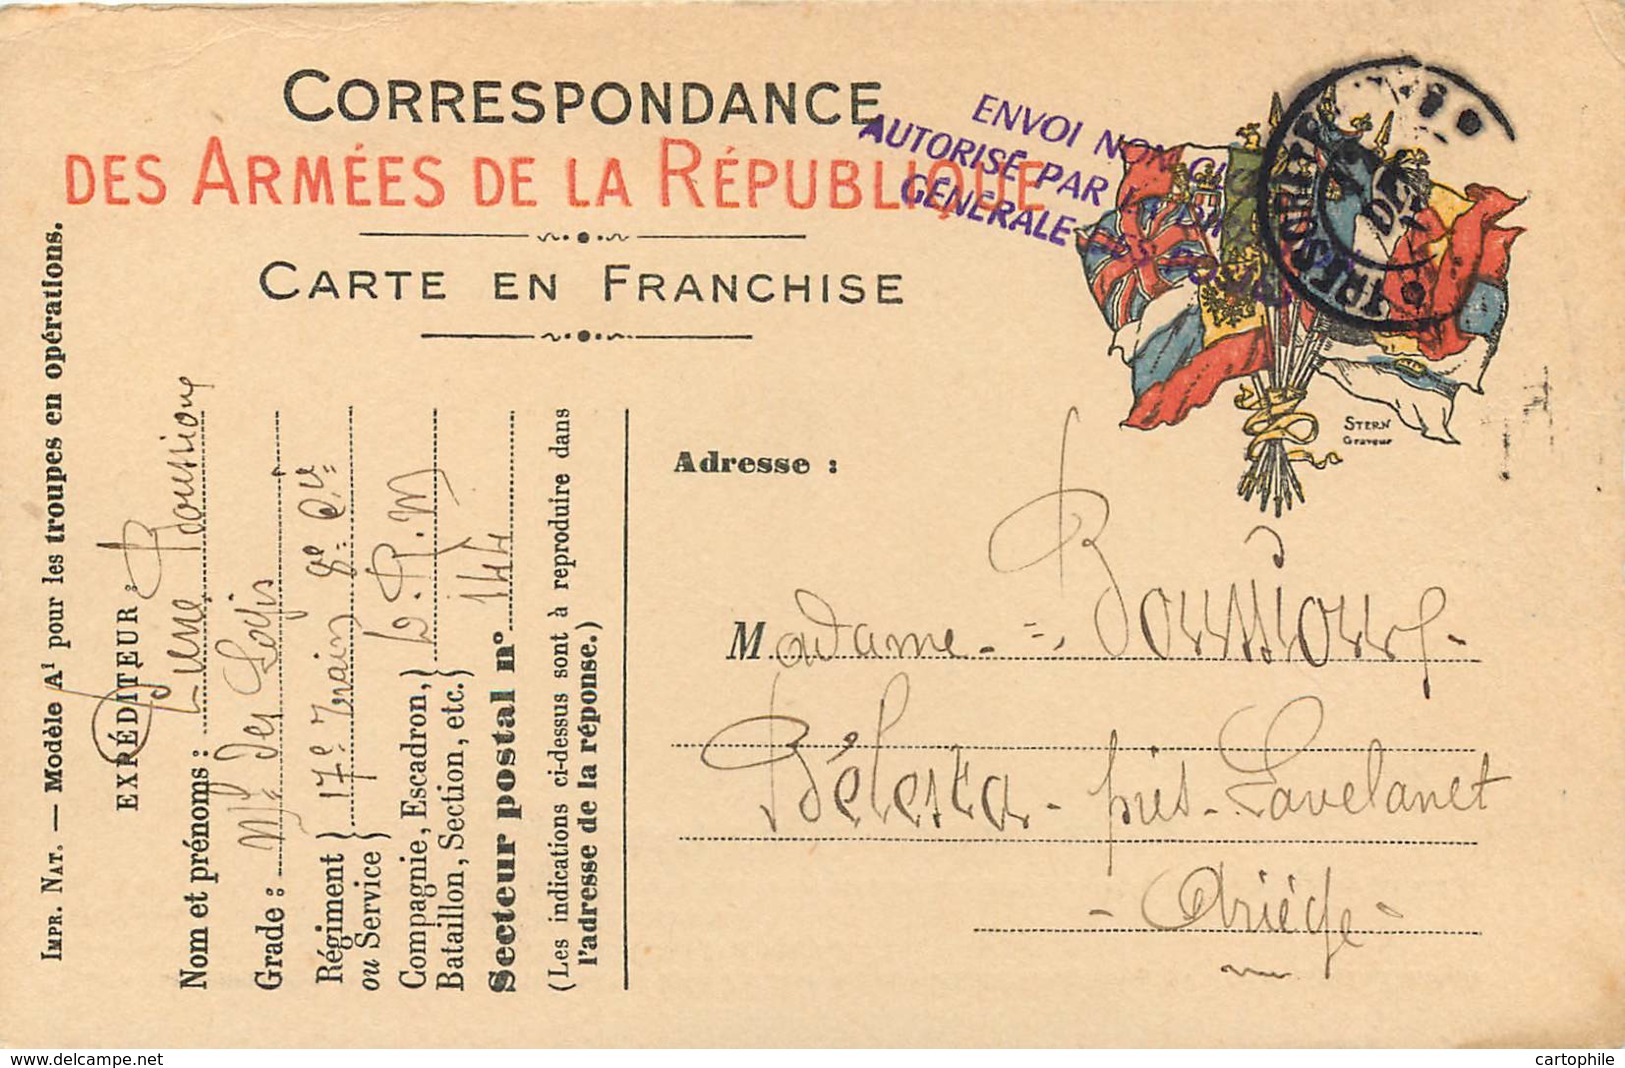 CORRESPONDANCE
DES ARMÉES DE LA RÉPUBLIQUE
CARTE EN FRANCHISE
ENVOI NON
AUTORISÉ PAR LA
GÉNÉRALE DES POSTES
TRESOR ET
17
DEC
STERN
Graveur
IMPR. NAT. — Modèle A¹ pour les troupes en opérations.
EXPÉDITEUR :
Nom et prénoms : Roussious
Grade : Mˡ des Logis
Régiment } 17e Train 8e Cie
ou Service }
Compagnie, Escadron, } R. M
Bataillon, Section, etc. }
Secteur postal n° 144
(Les indications ci-dessus sont à reproduire dans
l'adresse de la réponse.)
Adresse :
Madame Roussious
Bélesta - près Lavelanet
- Ariège -
www.delcampe.net
cartophile